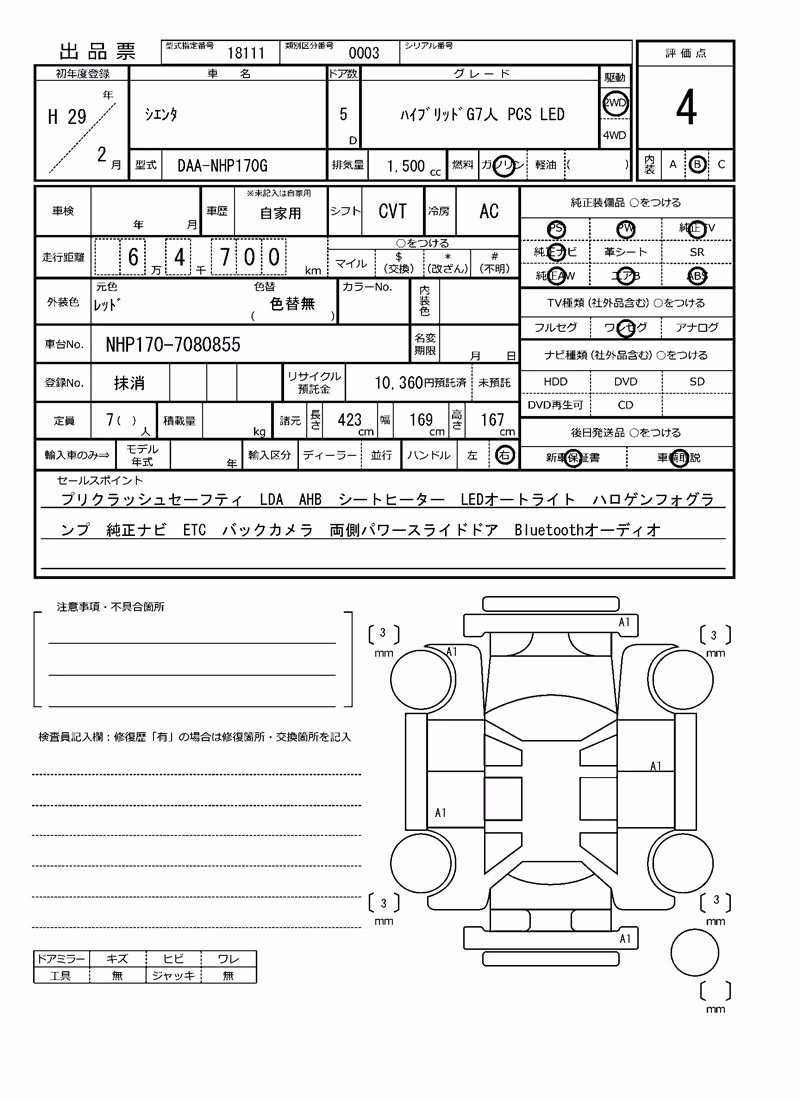 出品票 型式指定番号 18111 類別区分番号 0003 シリアル番号
評価点
4
内装 A B C
初年度登録 車名 ドア数 グレード 駆動
H 29 年 2 月
シエンタ 5 D ハイブリッドG7人 PCS LED 2WD
4WD
型式 DAA-NHP170G 排気量 1,500 cc 燃料 ガソリン 軽油 ( )
車検 年 月 車歴 ※未記入は自家用 自家用 シフト CVT 冷房 AC
走行距離 6 万 4 千 7 0 0 km
○をつける
マイル $ (交換) * (改ざん) # (不明)
外装色 元色 レッド 色替 ( 色替無 ) カラーNo. 内装色
車台No. NHP170-7080855 名変期限 月 日
登録No. 抹消 リサイクル預託金 10,360円預託済 未預託
定員 7( ) 人 積載量 kg 諸元 長さ 423 cm 幅 169 cm 高さ 167 cm
輸入車のみ⇒ モデル年式 年 輸入区分 ディーラー 並行 ハンドル 左 右
純正装備品 ○をつける
PS PW 純正TV
純正ナビ 革シート SR
純正AW エアB ABS
TV種類 (社外品含む) ○をつける
フルセグ ワンセグ アナログ
ナビ種類 (社外品含む) ○をつける
HDD DVD SD
DVD再生可 CD
後日発送品 ○をつける
新車保証書 車輌取説
セールスポイント
プリクラッシュセーフティ LDA AHB シートヒーター LEDオートライト ハロゲンフォグラ
ンプ 純正ナビ ETC バックカメラ 両側パワースライドドア Bluetoothオーディオ
注意事項・不具合箇所
検査員記入欄：修復歴「有」の場合は修復箇所・交換箇所を記入
ドアミラー キズ ヒビ ワレ
工具 無 ジャッキ 無
A1
3 mm
3 mm
A1
A1
A1
3 mm
3 mm
A1
mm